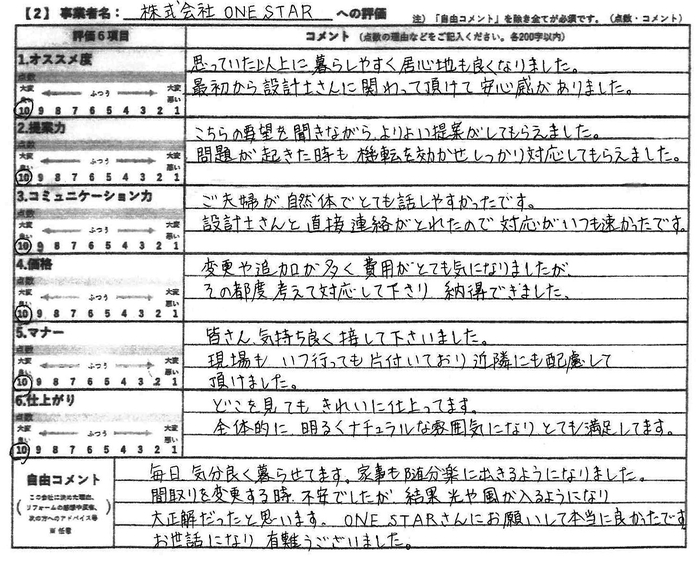 【2】事業者名： 株式会社 ONE STAR への評価 注）「自由コメント」を除き全てが必須です。（点数・コメント）
評価６項目 コメント（点数の理由などをご記入ください。各200字以内）
1.オススメ度
点数
大変良い ふつう 大変悪い
10 9 8 7 6 5 4 3 2 1
思っていた以上に暮らしやすく居心地も良くなりました。
最初から設計士さんに関わって頂けて安心感がありました。
2.提案力
点数
大変良い ふつう 大変悪い
10 9 8 7 6 5 4 3 2 1
こちらの要望を聞きながら、よりよい提案がしてもらえました。
問題が起きた時も機転を効かせしっかり対応してもらえました。
3.コミュニケーション力
点数
大変良い ふつう 大変悪い
10 9 8 7 6 5 4 3 2 1
ご夫婦が自然体でとても話しやすかったです。
設計士さんと直接連絡がとれたので対応がいつも速かったです。
4.価格
点数
大変良い ふつう 大変悪い
10 9 8 7 6 5 4 3 2 1
変更や追加が多く費用がとても気になりましたが、
その都度考えて対応して下さり納得できました、
5.マナー
点数
大変良い ふつう 大変悪い
10 9 8 7 6 5 4 3 2 1
皆さん、気持ち良く接して下さいました。
現場もいつ行っても片付いており近隣にも配慮して
頂けました。
6.仕上がり
点数
大変良い ふつう 大変悪い
10 9 8 7 6 5 4 3 2 1
どこを見てもきれいに仕上ってます。
全体的に明るくナチュラルな雰囲気になりとても満足してます。
自由コメント
この会社に決めた理由、
リフォームの感想や変化、
次の方へのアドバイス等
※ 任意
毎日気分良く暮らせてます。家事も随分楽に出きるようになりました。
間取りを変更する時、不安でしたが、結果光や風が入るようになり
大正解だったと思います。ONE STARさんにお願いして本当に良かったです
お世話になり有難うございました。